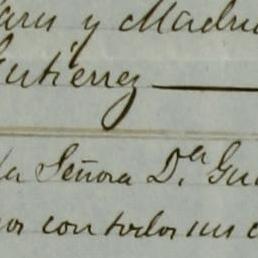 y Madri
Gutiérrez
la Señora D.ª Gu
con todos sus